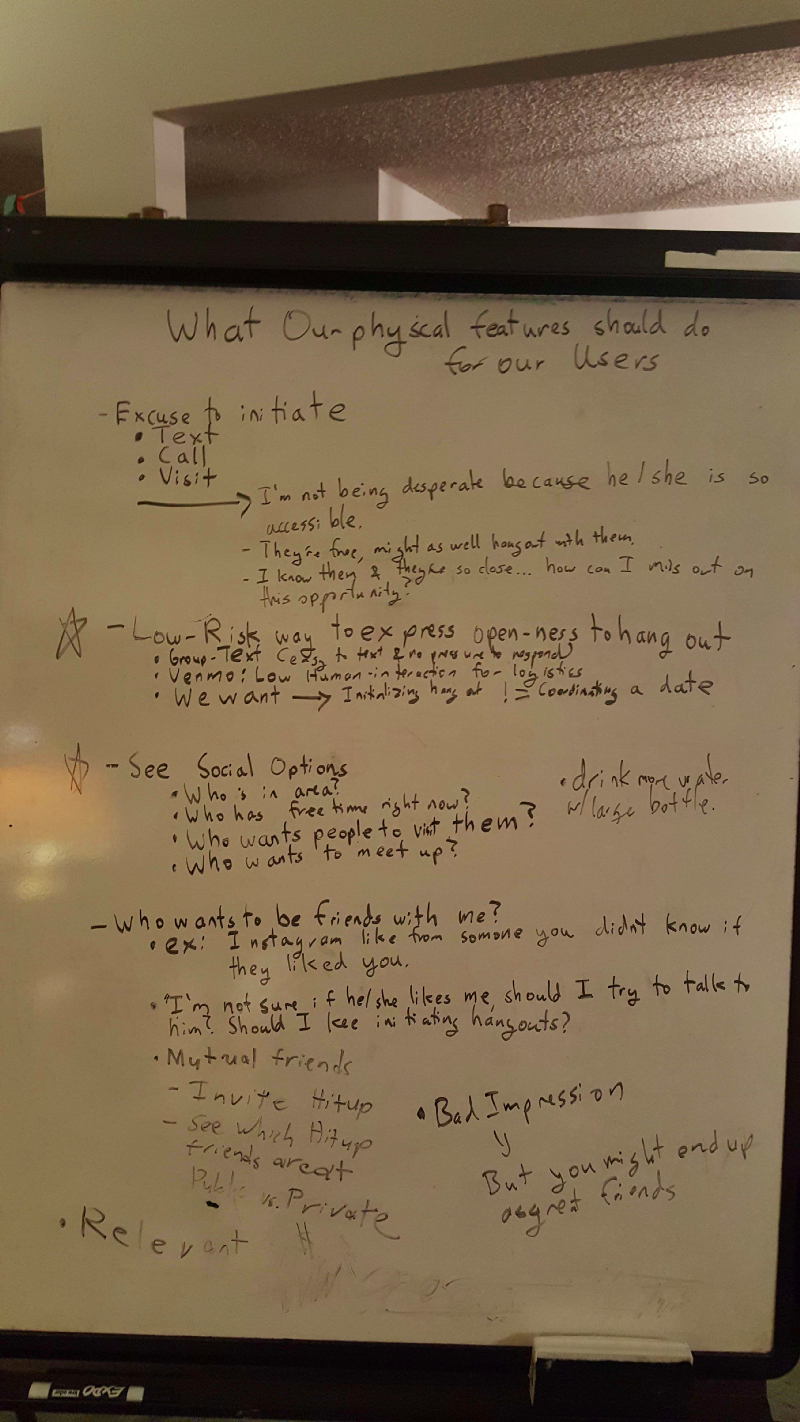 What Our physical features should do
for our Users
- Excuse to initiate
• Text
• Call
• Visit
I'm not being desperate because he/she is so
accessible.
- They're free, might as well hangout with them.
- I know them & they're so close... how can I miss out on
this opportunity?
☆ - Low-Risk way to express open-ness to hang out
• Group-Text (easy to text & no pressure to respond)
• Venmo: Low Human-interaction for logistics
• We want → Initializing hang out != Coordinating a date
☆ - See Social Options
• Who's in area?
• Who has free time right now?
• Who wants people to visit them?
• Who wants to meet up?
• drink more water
w/large bottle.
- Who wants to be friends with me?
• ex: Instagram like from somone you didn't know if
they liked you.
• "I'm not sure if he/she likes me, should I try to talk to
him? Should I kee initiating hangouts?
• Mutual friends
- Invite Hitup
- See which Hitup
friends are at
Public vs. Private
• Bad Impression
But you might end up
as great friends
• Relevant
EXPO